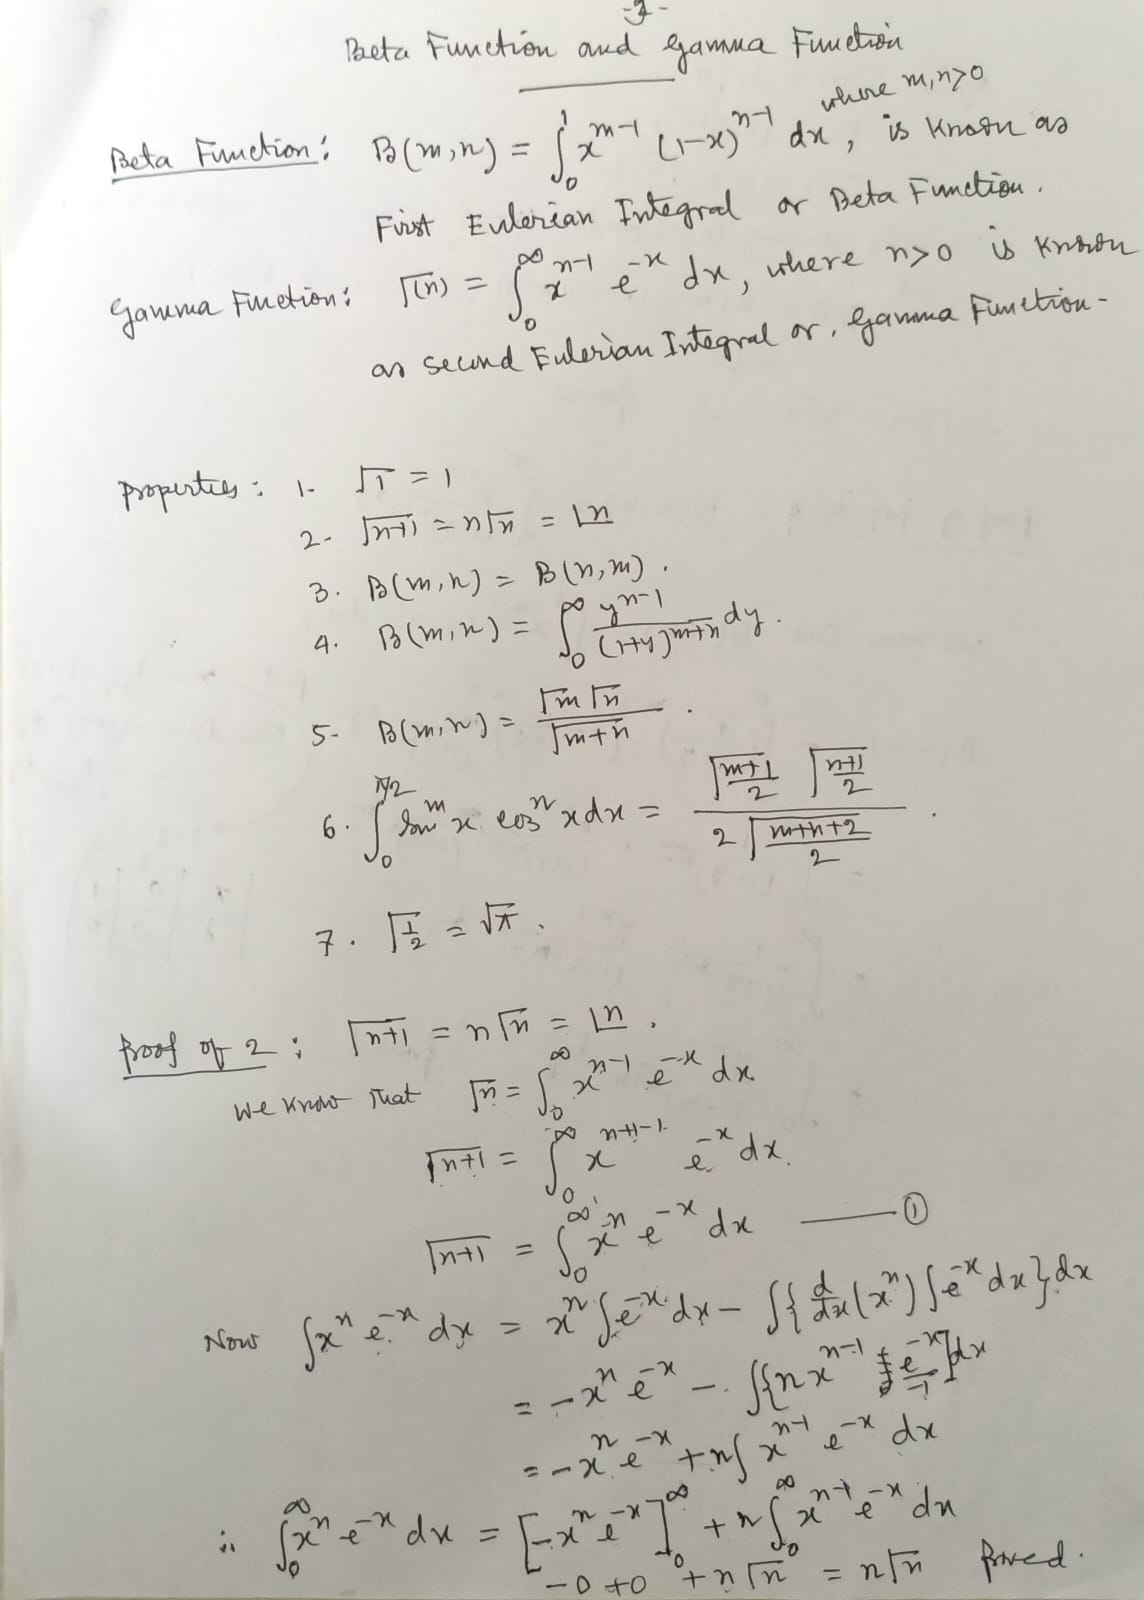 -2-
Beta Function and Gamma Function
where m,n>0
Beta Function: B(m,n) = ∫₀¹ x^{m-1} (1-x)^{n-1} dx, is known as
First Eulerian Integral or Beta Function.
Gamma Function: Γ(n) = ∫₀^∞ x^{n-1} e^{-x} dx, where n>0 is known
as second Eulerian Integral or, Gamma Function-
Properties: 1- Γ1 = 1
2- Γ(n+1) = nΓn = ⌊n
3. B(m,n) = B(n,m).
4. B(m,n) = ∫₀^∞ y^{n-1}/(1+y)^{m+n} dy.
5- B(m,n) = Γm Γn / Γ(m+n).
6. ∫₀^{π/2} sin^m x cos^n x dx = Γ((m+1)/2) Γ((n+1)/2) / 2Γ((m+n+2)/2).
7. Γ(1/2) = √π.
Proof of 2: Γ(n+1) = nΓn = ⌊n.
We know that Γn = ∫₀^∞ x^{n-1} e^{-x} dx
Γ(n+1) = ∫₀^∞ x^{n+1-1} e^{-x} dx.
Γ(n+1) = ∫₀^∞ x^n e^{-x} dx —— ①
Now ∫x^n e^{-x} dx = x^n ∫e^{-x} dx - ∫{d/dx (x^n) ∫e^{-x} dx} dx
= -x^n e^{-x} - ∫{n x^{n-1} e^{-x}/-1} dx
= -x^n e^{-x} + n∫ x^{n-1} e^{-x} dx
∴ ∫₀^∞ x^n e^{-x} dx = [-x^n e^{-x}]₀^∞ + n∫₀^∞ x^{n-1} e^{-x} dx
-0 +0 + nΓn = nΓn Proved.